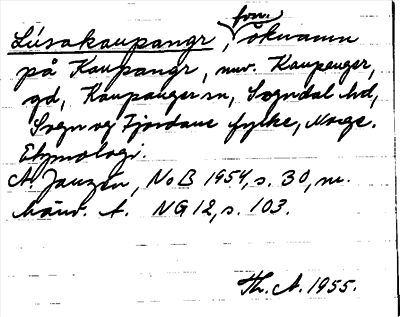 Lúsakaupangr, fvn. öknamn
på Kaupangr, nuv. Kaupanger,
gd, Kaupanger sn, Sogndal hd,
Sogn og Fjordane fylke, Norge.
Etymologi.
A. Janzén, NoB 1954, s. 30, m.
hänv. t. NG 12, s. 103.
Th. A. 1955.